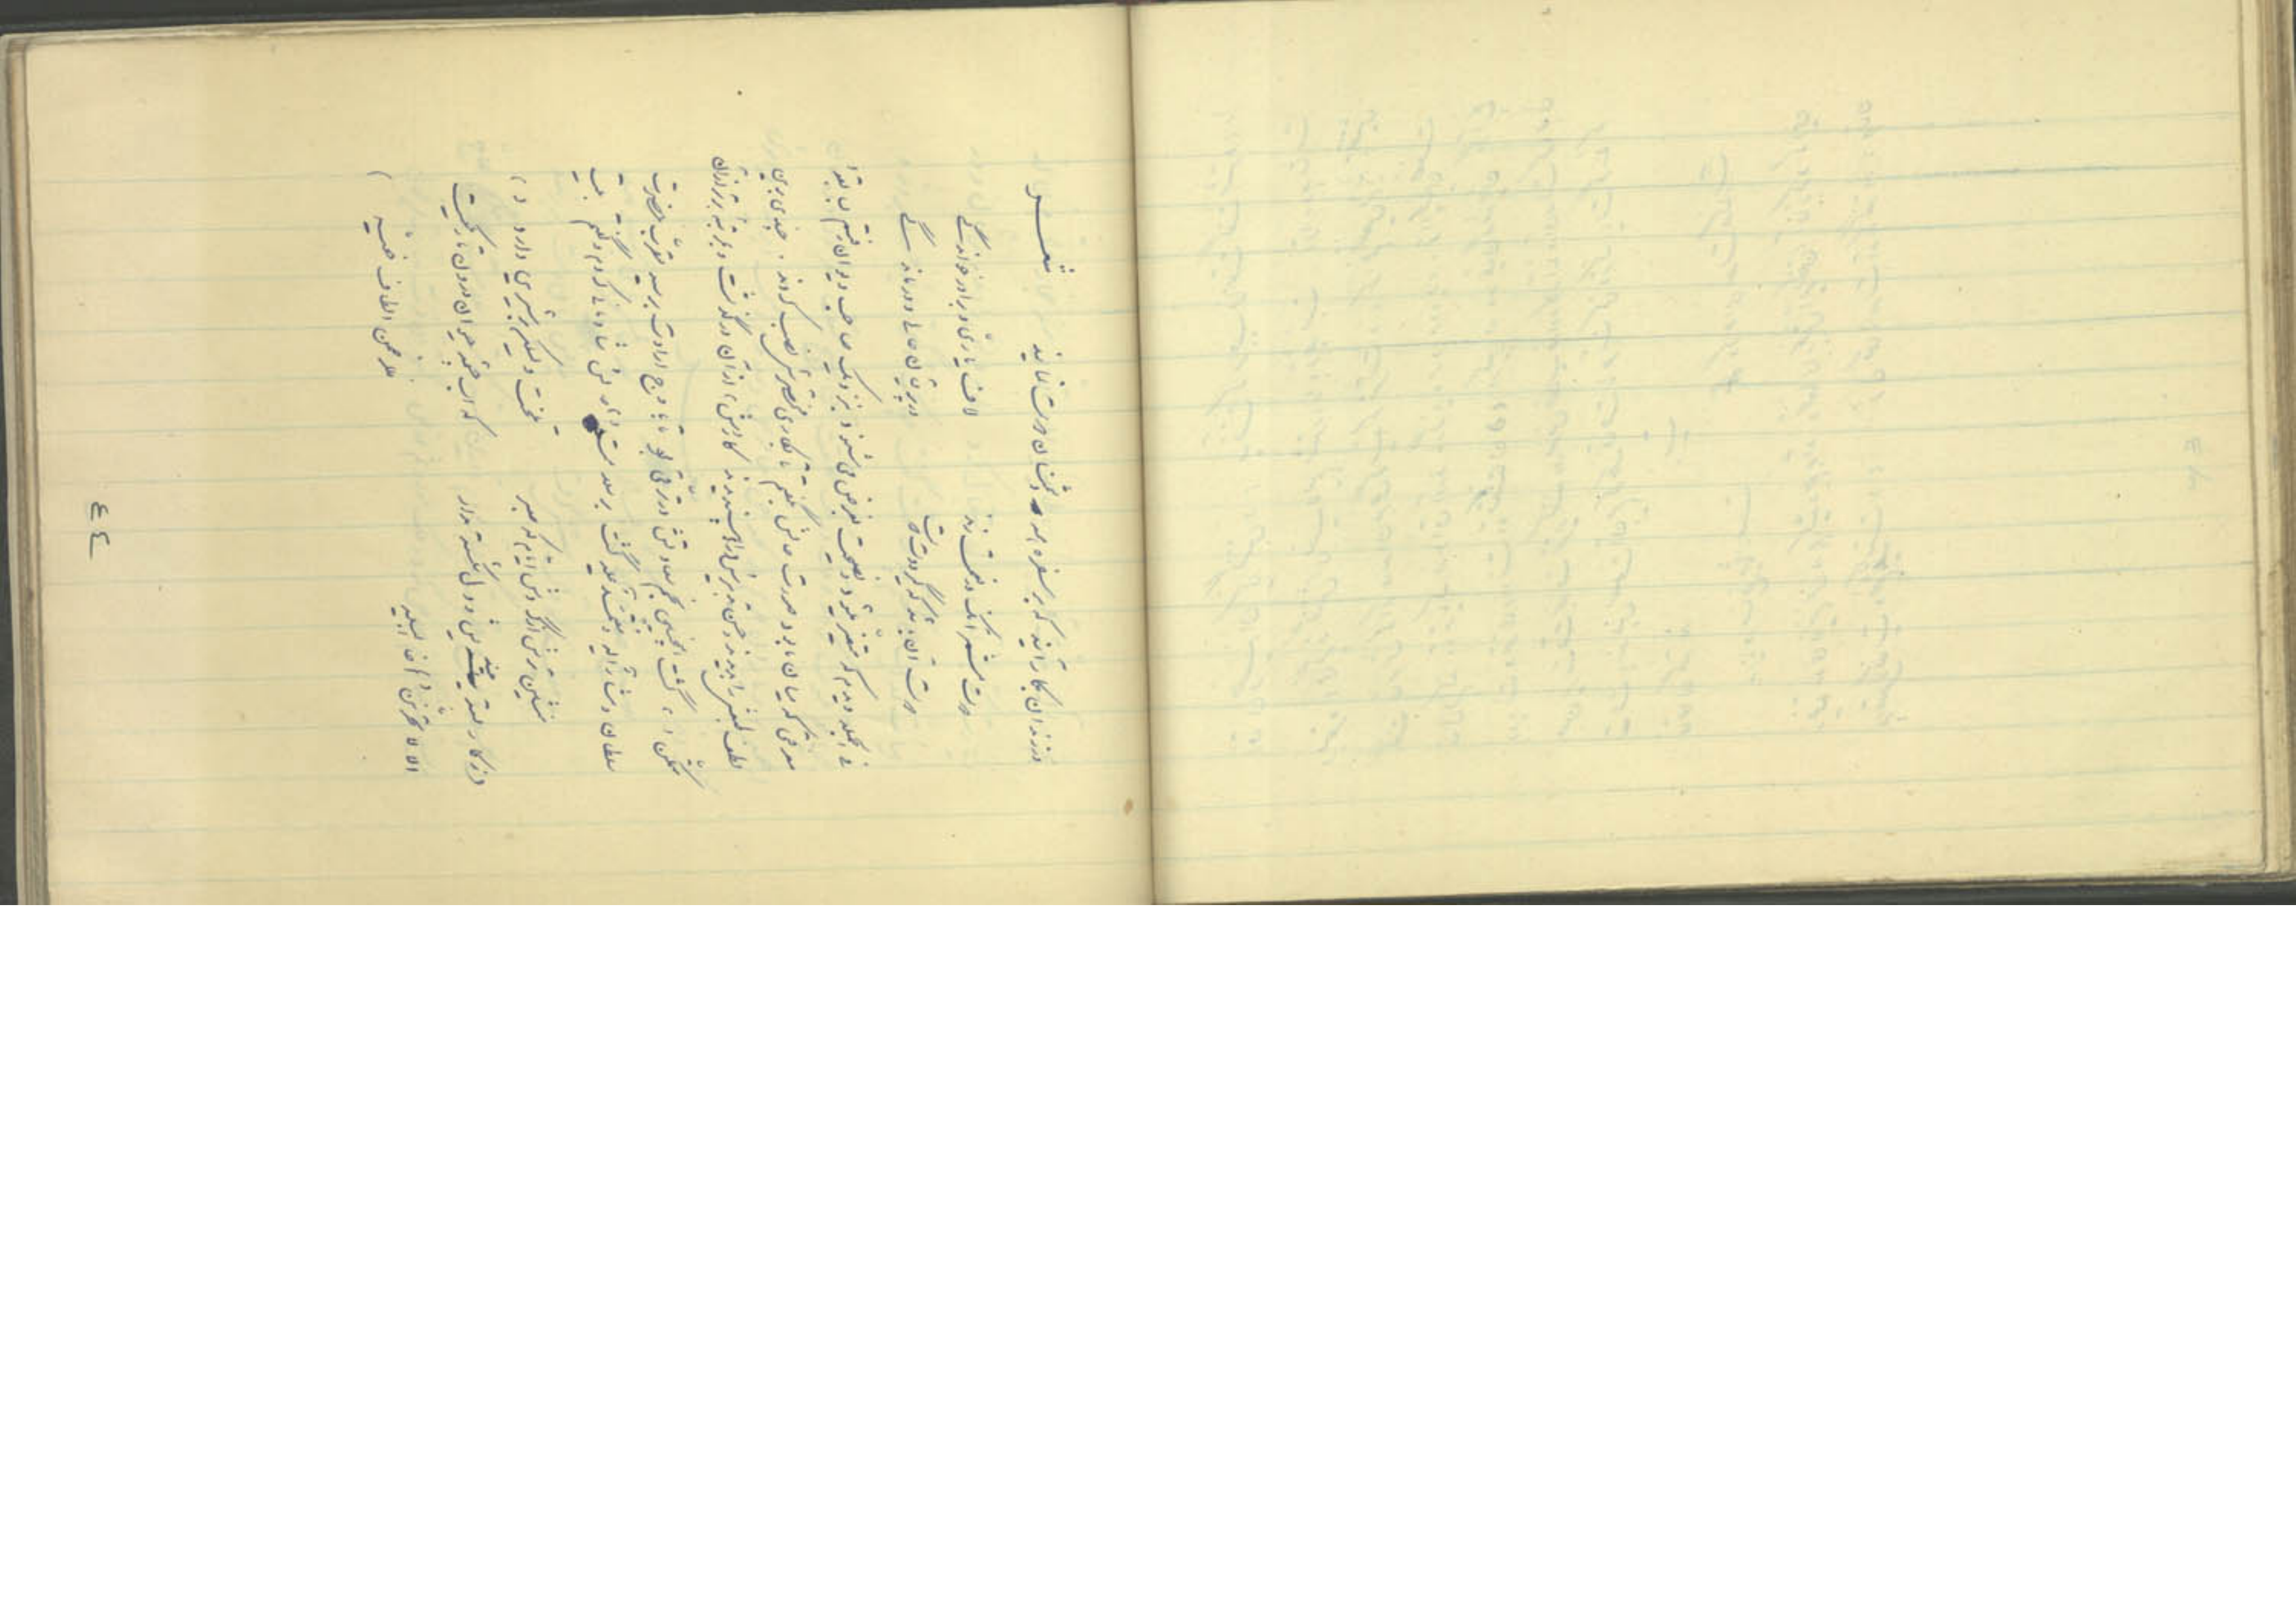 درزندان بکار آیند که بر سفره همه دشمنان دوست نمایند شعر
دوست مشمر آنکه در نعمت زند لاف یاری و برادر خواندگی
دوست آن باشد که گیرد دست دوست در پریشان حالی و درماندگی
فی الجمله دیدم که متغیر میشود و نصیحت بغرض می شنود بنزدیک صاحب دیوان رفتم
معرفتی که میان ما بود صورت حالش بگفتم تا بکاری مختصرش نصب کردند . چندی برین
لطف طبعش را بدیدند و حسن تدبیرش را بپسندیدند کارش از آن درگذشت و بمرتبه برتر از آن
متمکن گشت همچنین نجم سعادتش در ترقی بود تا باوج ارادت برسید و مقرب حضرت
سلطان و مشار الیه و معتمد علیه گشت بر سلامت حالش شادمانی کردم و گفتم بیت
منشین ترش از گردش ایام که صبر تلخست ولیکن بر شیرین دارد
ز کار بسته میندیش و دل شکسته مدار که آب چشمه حیوان درون تاریکیست
الا لا تحزنن اخا البلیه
فللرحمن الطاف خفیه
٤٤